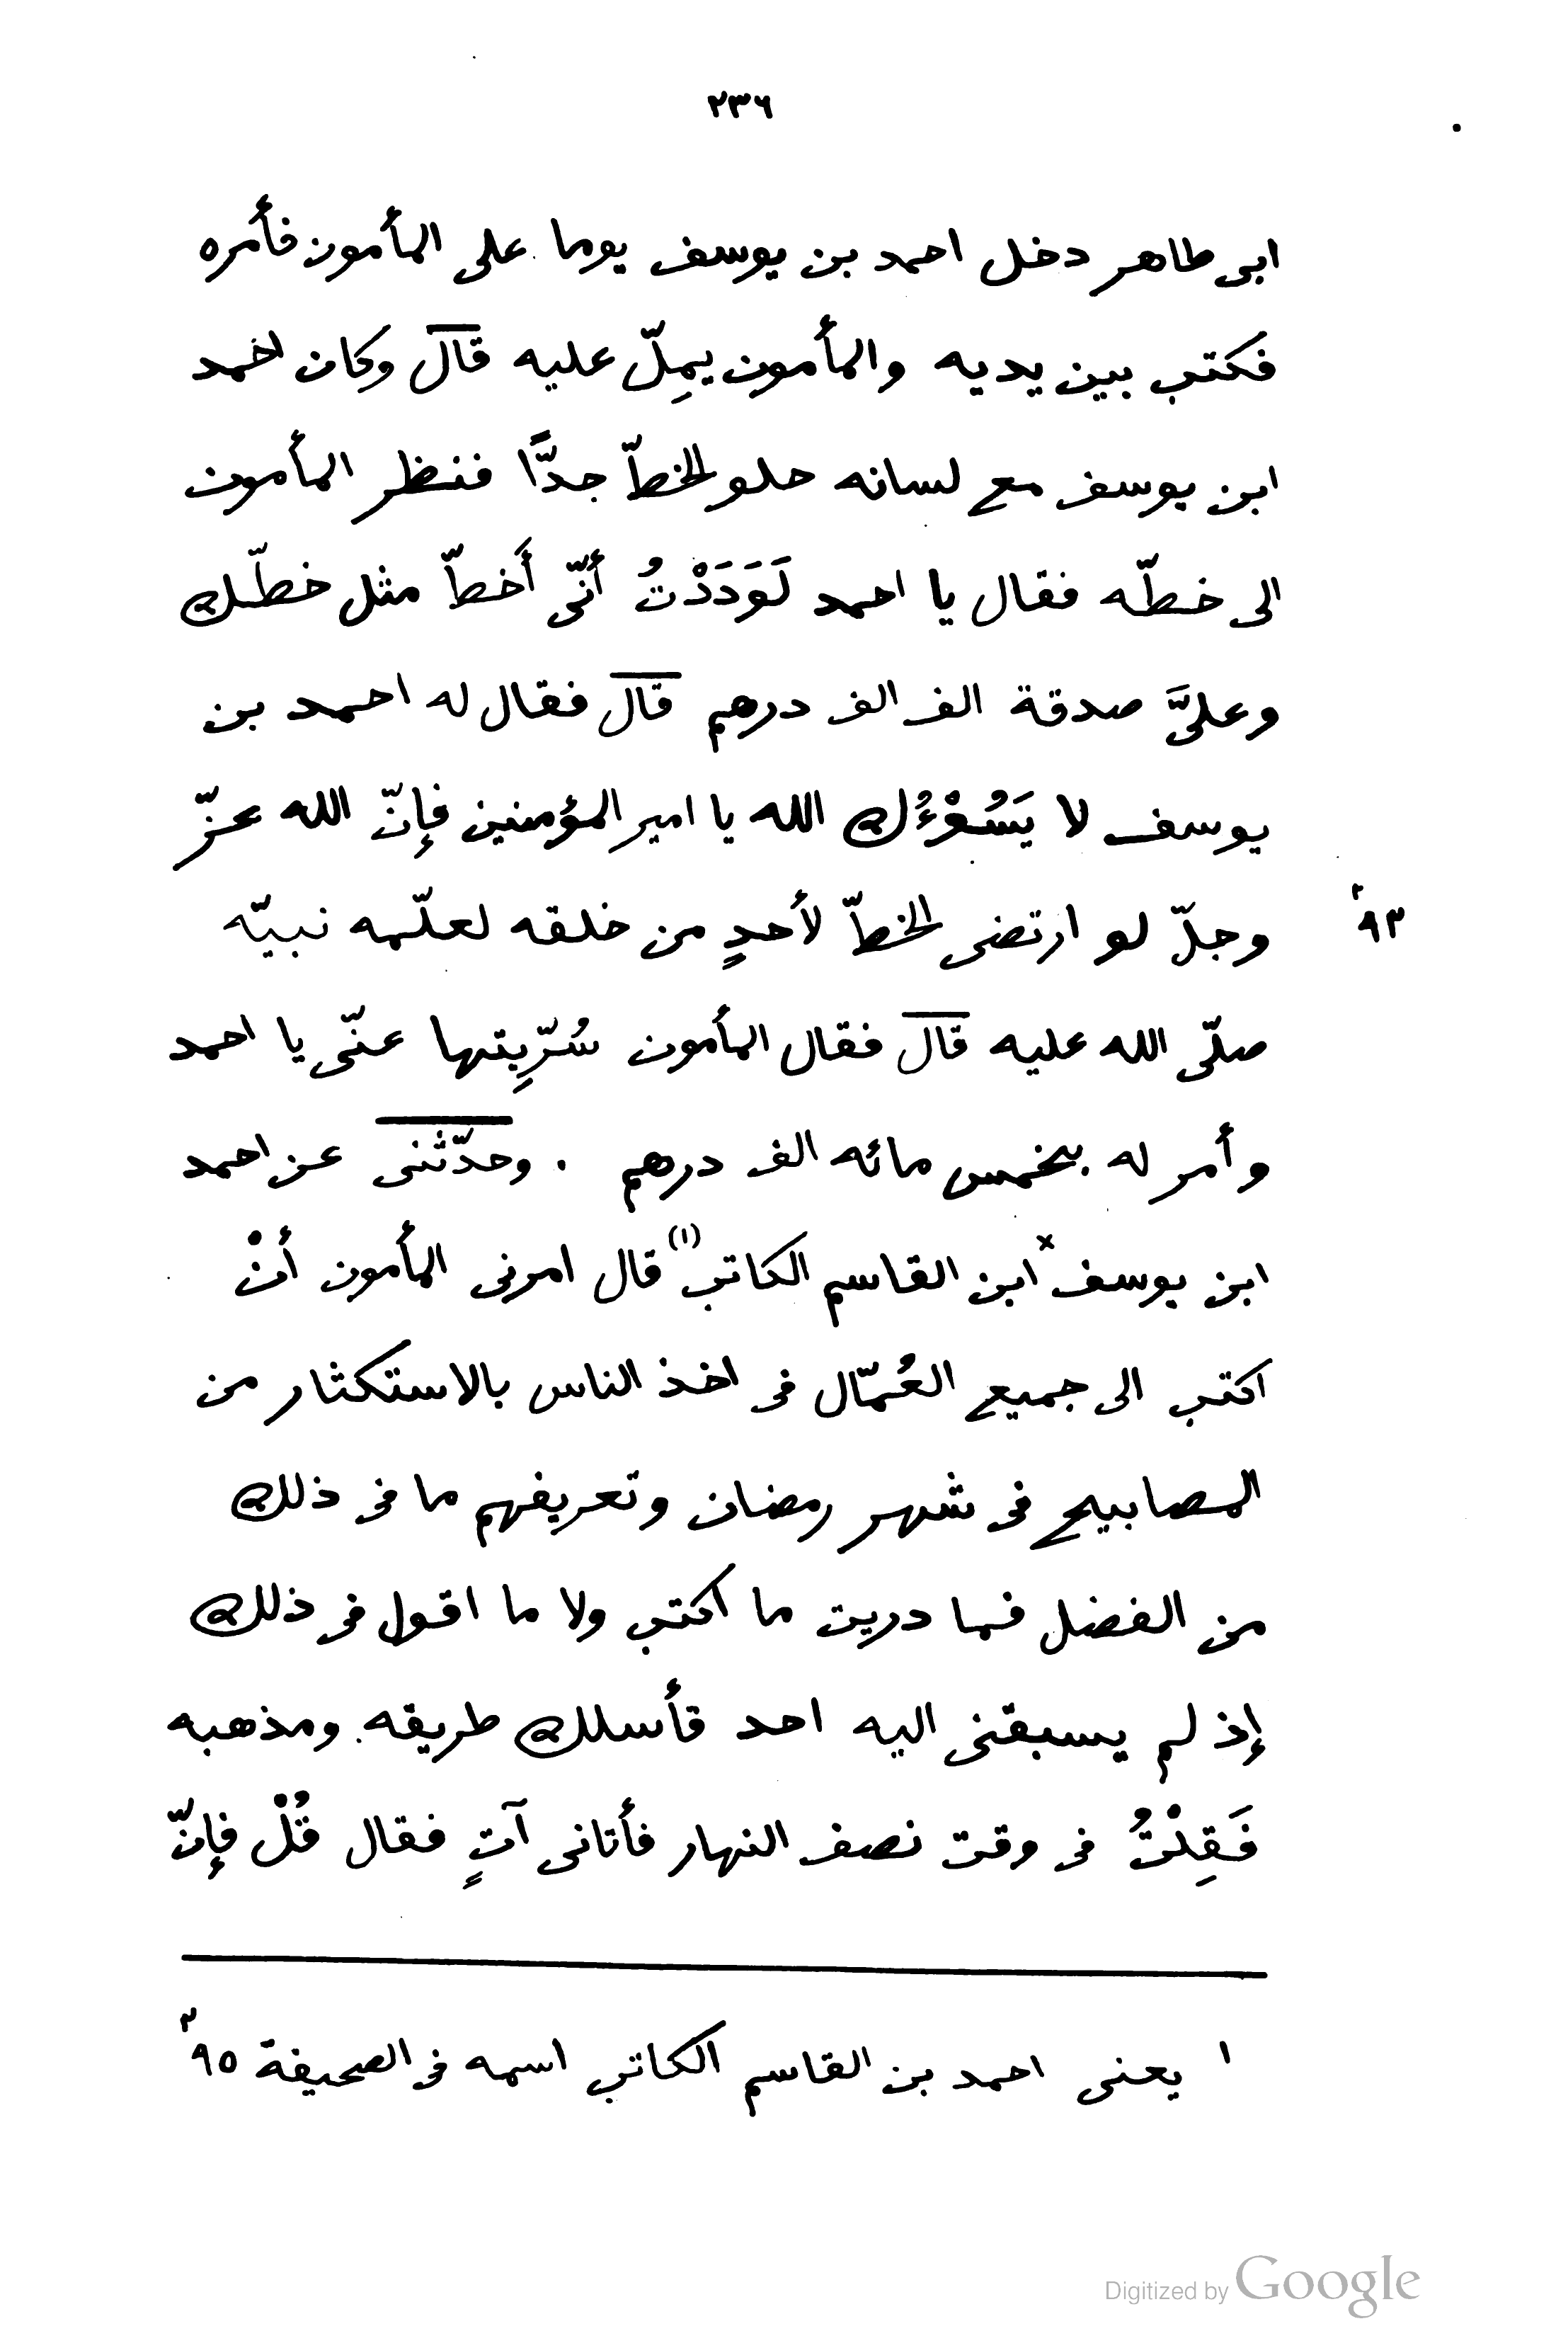 ٢٣٦
ابى طاهر دخل احمد بن يوسف يوما على المأمون فأمره
فكتب بين يديه والمأمون يمِلّ عليه قال وكان احمد
ابن يوسف مع لسانه حلو الخطّ جدًّا فنظر المأمون
الى خطّه فقال يا احمد لَوَدَدْتُ أنّى أَخطّ مثل خطّك
وعلىَّ صدقة الف الف درهم قال فقال له احمد بن
يوسف لا يَسُوْءُك الله يا امير المؤمنين فإنّ الله عزّ
وجلّ لو ارتضى الخطّ لأحدٍ من خلقه لعلّمه نبيّه
٩٣٢
صلّى الله عليه قال فقال المأمون سُرّيِتها عنّى يا احمد
وأمر له بخمس مائه الف درهم . وحدّثنى عن احمد
ابن يوسف × ابن القاسم الكاتب (١) قال امرنى المأمون أنْ
اكتب الى جميع العُمّال فى اخذ الناس بالاستكثار من
المصابيح فى شهر رمضان وتعريفهم ما فى ذلك
من الفضل فما دريت ما اكتب ولا ما اقول فى ذلك
إذ لم يسبقنى اليه احد قأسلك طريقه ومذهبه
فَقِلْتُ فى وقت نصف النهار فأتانى آتٍ فقال قُلْ فإنّ
١ يعنى احمد بن القاسم الكاتب اسمه فى الصحيفة ٩٥٢
Digitized by Google